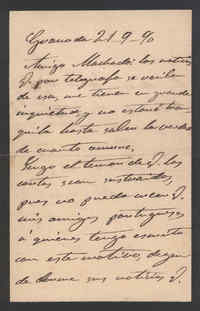 Granada 21-9-90
Amigo Machado: las noticias
q. por telegrafo se reciben
de esa, me tienen en grande
inquietud y no estaré tran-
quilo hasta saber la verdad
de cuanto ocurre.
Tengo el temor de q. las
cartas sean
pues no puedo creer q.
mis amigos portugueses
á quienes tengo escrito
con este motivo, dejen
de darme sus noticias q.